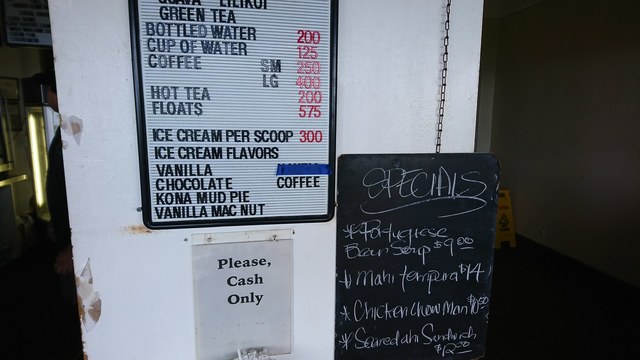 GUAVA LILIKOI
GREEN TEA
BOTTLED WATER 200
CUP OF WATER 125
COFFEE SM 250
LG 400
HOT TEA 200
FLOATS 575
ICE CREAM PER SCOOP 300
ICE CREAM FLAVORS
VANILLA
CHOCOLATE COFFEE
KONA MUD PIE
VANILLA MAC NUT
Please,
Cash
Only
SPECIALS
* Portugiese
Bean Soup $9.00
* Mahi tempura $14
* Chicken Chow Mein
* Seared ahi Sandwich
$12.00